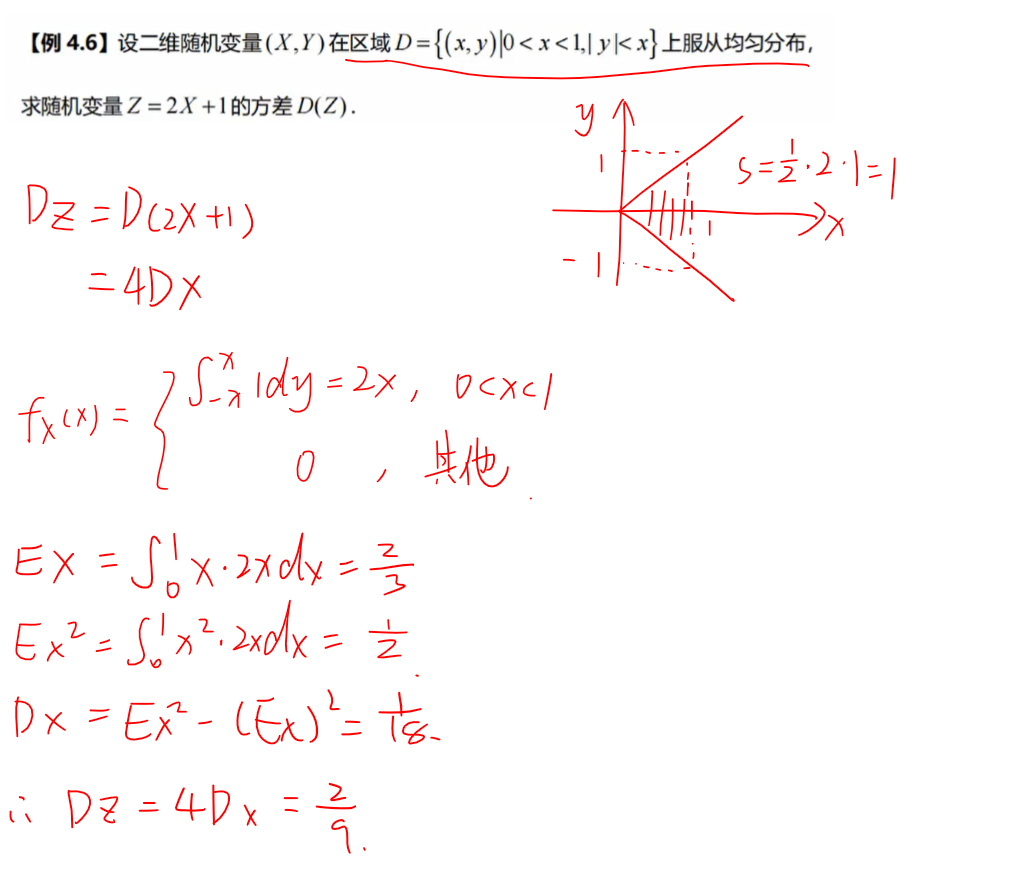 【例 4.6】设二维随机变量(X,Y)在区域D={(x,y)|0<x<1,|y|<x}上服从均匀分布,
求随机变量Z=2X+1的方差D(Z).
y
1
S=½·2·1=1
1
x
-1
DZ=D(2X+1)
=4DX
fx(x)={∫_{-x}^{x}1dy=2x, 0<x<1
0, 其他.
EX=∫₀¹x·2xdx=2/3
Ex²=∫₀¹x²·2xdx=1/2.
Dx=Ex²-(Ex)²=1/18.
∴ DZ=4Dx=2/9.